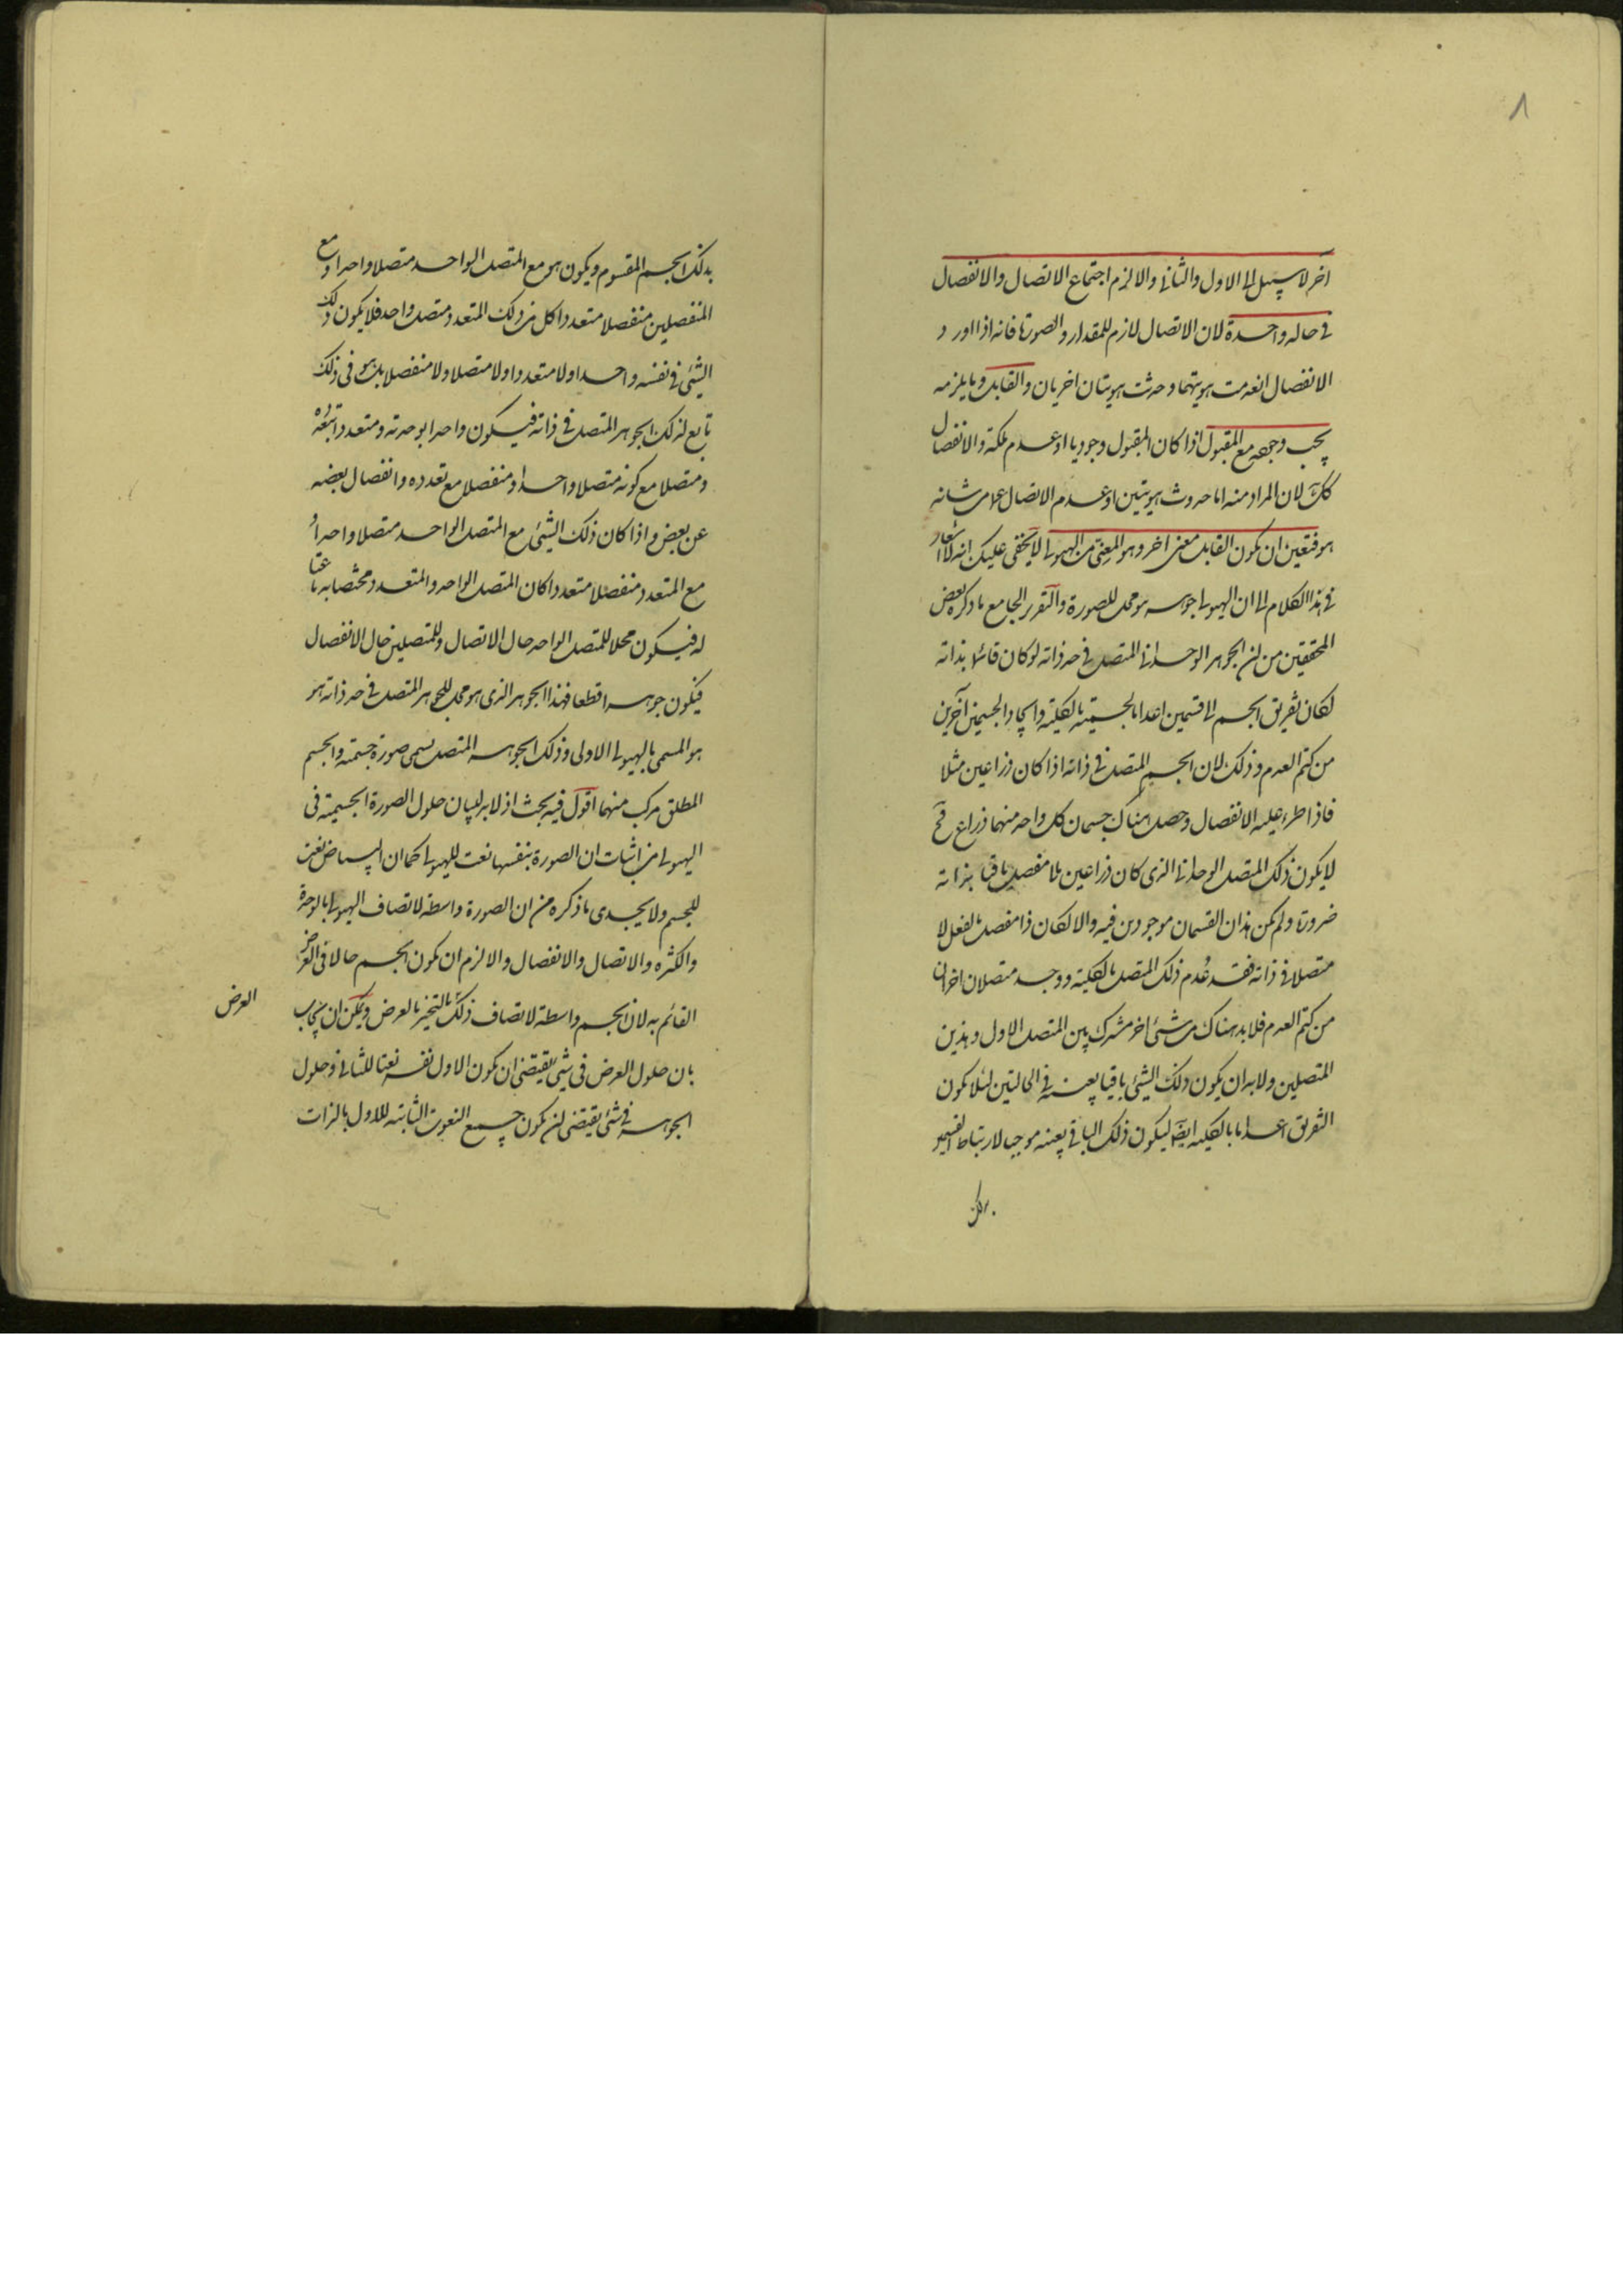 ٨
اخر لا سبيل الى الاول والثانى والا لزم اجتماع الاتصال والانفصال
فى حالة واحدة لان الاتصال لازم للمقدار والصورة فانه اذا اورد
الانفصال انعدمت هويتهما وحدثت هويتان اخريان والقابل وما يلزمه
يجب وجوده مع المقبول اذا كان المقبول وجوديا او عدم ملكة والانفصال
كك لان المراد منه اما حدوث هويتين او عدم الاتصال عما من شانه
هو فتعين ان يكون القابل معنى اخر وهو المعنى من الهيولى لا يخفى عليك انه لا اشعار
فى هذا الكلام الى ان الهيولى جوهر ومحل للصورة والتقرير الجامع ما ذكره بعض
المحققين من ان الجوهر الوحدانى المتصل فى حد ذاته لو كان قائما بذاته
لكان تفريق الجسم الى قسمين اعداما لجسمية بالكلية وايجادا لجسمين آخرين
من كتم العدم وذلك لان الجسم المتصل فى ذاته اذا كان ذراعين مثلا
فاذا طرء عليه الانفصال وحصل هناك جسمان كل واحد منهما ذراع فح
لا يكون ذلك المتصل الوحدانى الذى كان ذراعين بلا مفصل باقيا بذاته
ضرورة ولم يكن هذان القسمان موجودين فيه والا لكان ذا مفصل بالفعل لا
متصلا فى ذاته فقد عُدم ذلك المتصل بالكلية ووجد متصلان اخران
من كتم العدم فلا بد هناك من شئ اخر مشترك بين المتصل الاول وهذين
المتصلين ولا بد ان يكون ذلك الشئ باقيا بعينه فى الحالتين لئلا يكون
التفريق اعداما بالكلية ايضا ليكون ذلك الباقى بعينه موجبا لارتباط القسمين
بذلك
بذلك الجسم المقسوم ويكون هو مع المتصل الواحد متصلا واحدا ومع
المنفصلين منفصلا متعددا كل من ذلك المتعدد متصل واحد فلا يكون ذلك
الشئ فى نفسه واحدا ولا متعددا ولا متصلا ولا منفصلا بل هو فى ذلك
تابع لذلك الجوهر المتصل فى ذاته فيكون واحدا بوحدته ومتعددا بتعدده
ومتصلا مع كونه متصلا واحدا ومنفصلا مع تعدده وانفصال بعضه
عن بعض واذا كان ذلك الشئ مع المتصل الواحد متصلا واحدا و
مع المتعدد منفصلا متعددا كان المتصل الواحد والمتعدد مختصا به ناعتا
له فيكون محلا للمتصل الواحد حال الاتصال وللمتصلين حال الانفصال
فيكون جوهرا قطعا فهذا الجوهر الذى هو محل للجوهر المتصل فى حد ذاته هو
هو المسمى بالهيولى الاولى وذلك الجوهر المتصل يسمى صورة جسمية والجسم
المطلق مركب منهما اقول فيه بحث اذ لا بد لبيان حلول الصورة الجسمية فى
الهيولى من اثبات ان الصورة بنفسها نعت للهيولى كما ان البياض نعت
للجسم ولا يجدى ما ذكره من ان الصورة واسطة لاتصاف الهيولى بالوحدة
والكثرة والاتصال والانفصال والا لزم ان يكون الجسم حالا فى العرض
القائم به لان الجسم واسطة لاتصاف ذلك بالتحيز بالعرض ويمكن ان يجاب
العرض
بان حلول العرض فى شئ يقتضى ان يكون الاول نفسه نعتا للثانى وحلول
الجوهر فى شئ يقتضى ان يكون جميع النعوت الثابتة للاول بالذات